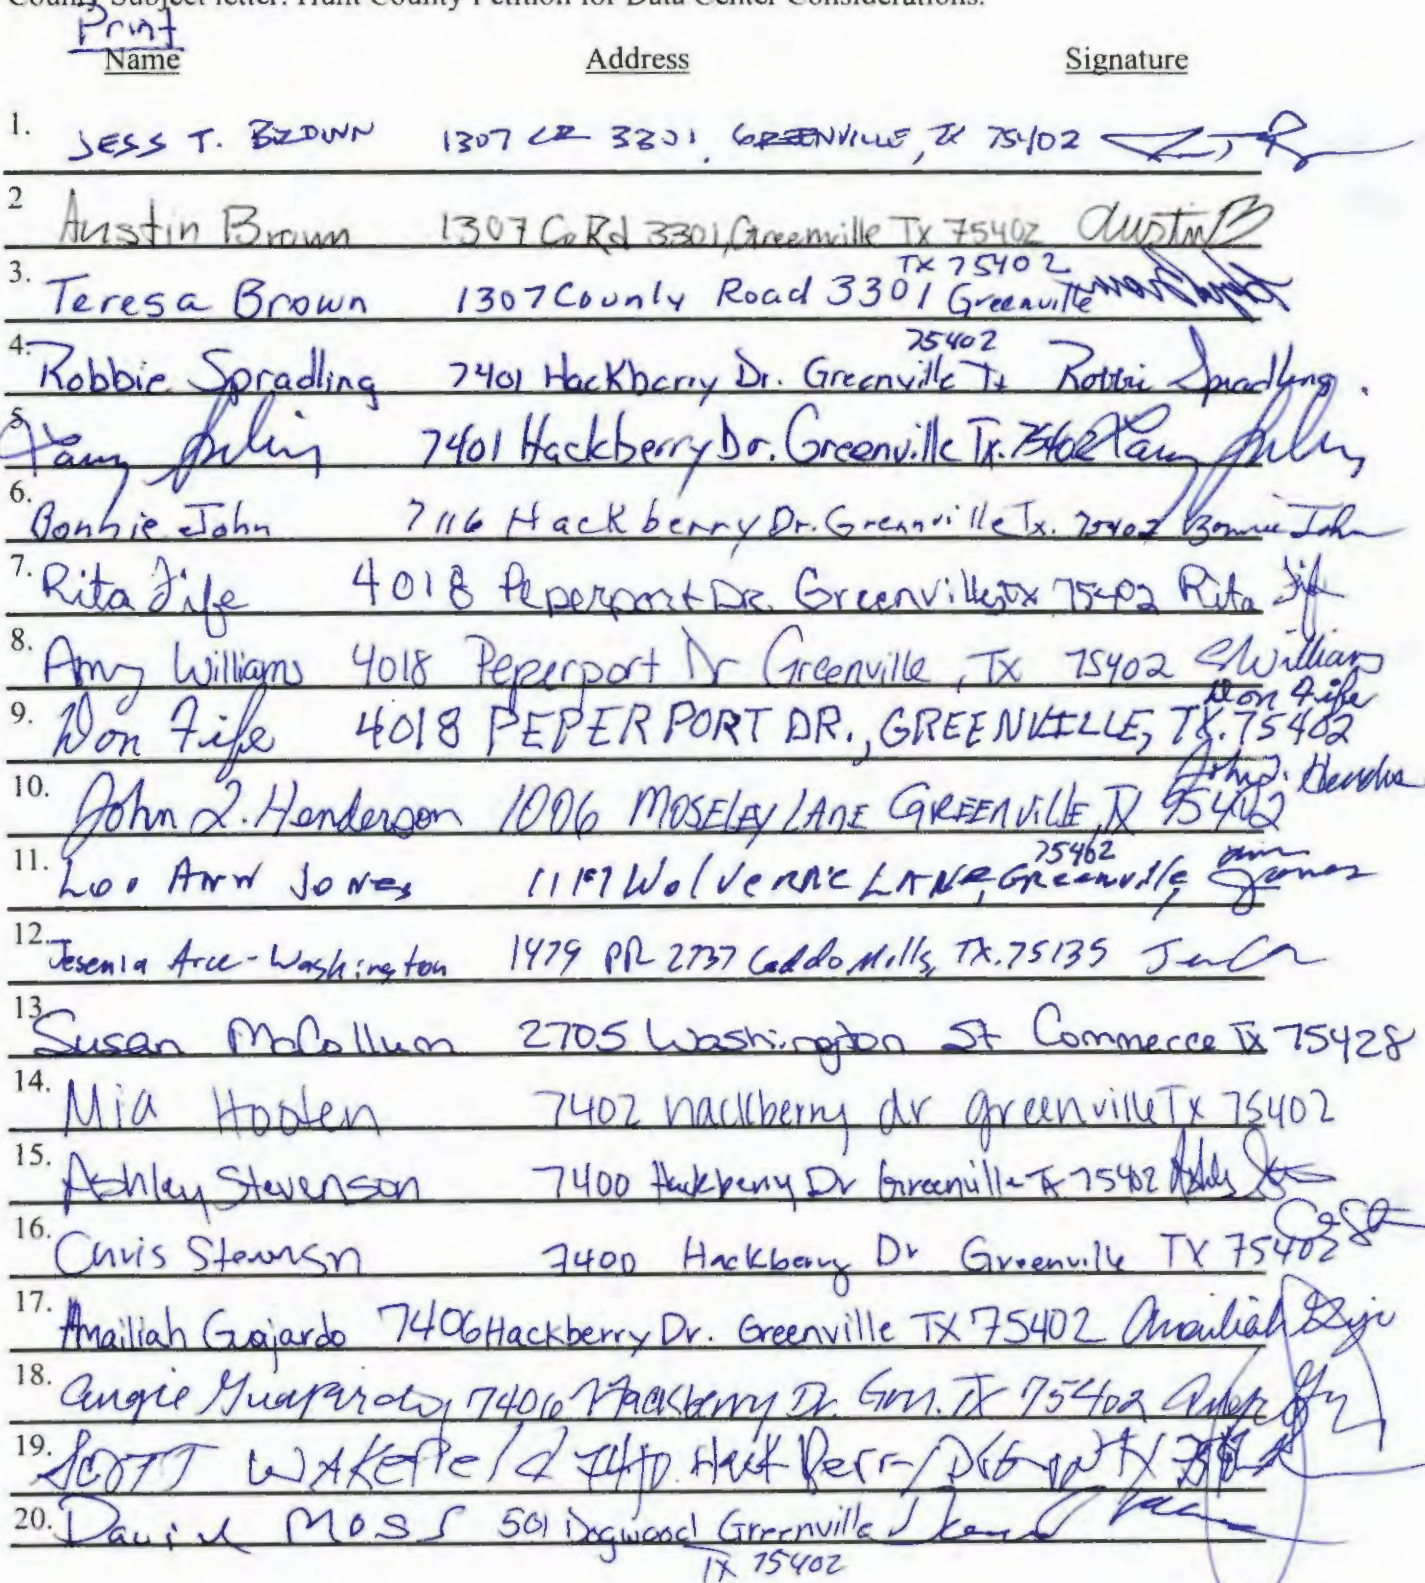 County Subject letter: Hunt County Petition for Data Center Considerations.
Print
Name Address Signature
1. JESS T. BROWN 1307 CR 3301, GREENVILLE, TX 75402
2 Austin Brown 1307 Co Rd 3301, Greenville Tx 75402 Austin B
TX 75402
3. Teresa Brown 1307 County Road 3301 Greenville
75402
4. Robbie Spradling 7401 Hackberry Dr. Greenville Tx Robbie Spradling
5. 7401 Hackberry Dr. Greenville Tx. 75402
6. Bonnie John 7116 Hackberry Dr. Greenville Tx. 75402 Bonnie John
7. Rita Fife 4018 Peperport Dr. Greenville, TX 75402 Rita Fife
8. Amy Williams 4018 Peperport Dr Greenville, Tx 75402 Williams
Don Fife
9. Don Fife 4018 PEPER PORT DR., GREENVILLE, TX. 75402
10. John L. Henderson 1006 MOSELEY LANE GREENVILLE, TX 75402
75402
11. Lou Ann Jones Wolverine LANE, Greenville, Jones
12. Jesenia Arce-Washington 1479 PR 2737 Caddo Mills, TX. 75135
13. Susan McCollum 2705 Washington St Commerce Tx 75428
14. Mia Hooten 7402 hackberry dr greenville Tx 75402
15. Ashley Stevenson 7400 Hackberry Dr Greenville Tx 75402
16. Chris Stevenson 7400 Hackberry Dr Greenville TX 75402
17. Amailiah Gajardo 7406 Hackberry Dr. Greenville TX 75402
18. Angie Guajardo, 7406 Hackberry Dr. Grn. TX 75402
19. SCOTT WAKEFIELD 7410 Hack Berry
20. David Moss 501 Dogwood Greenville
TX 75402